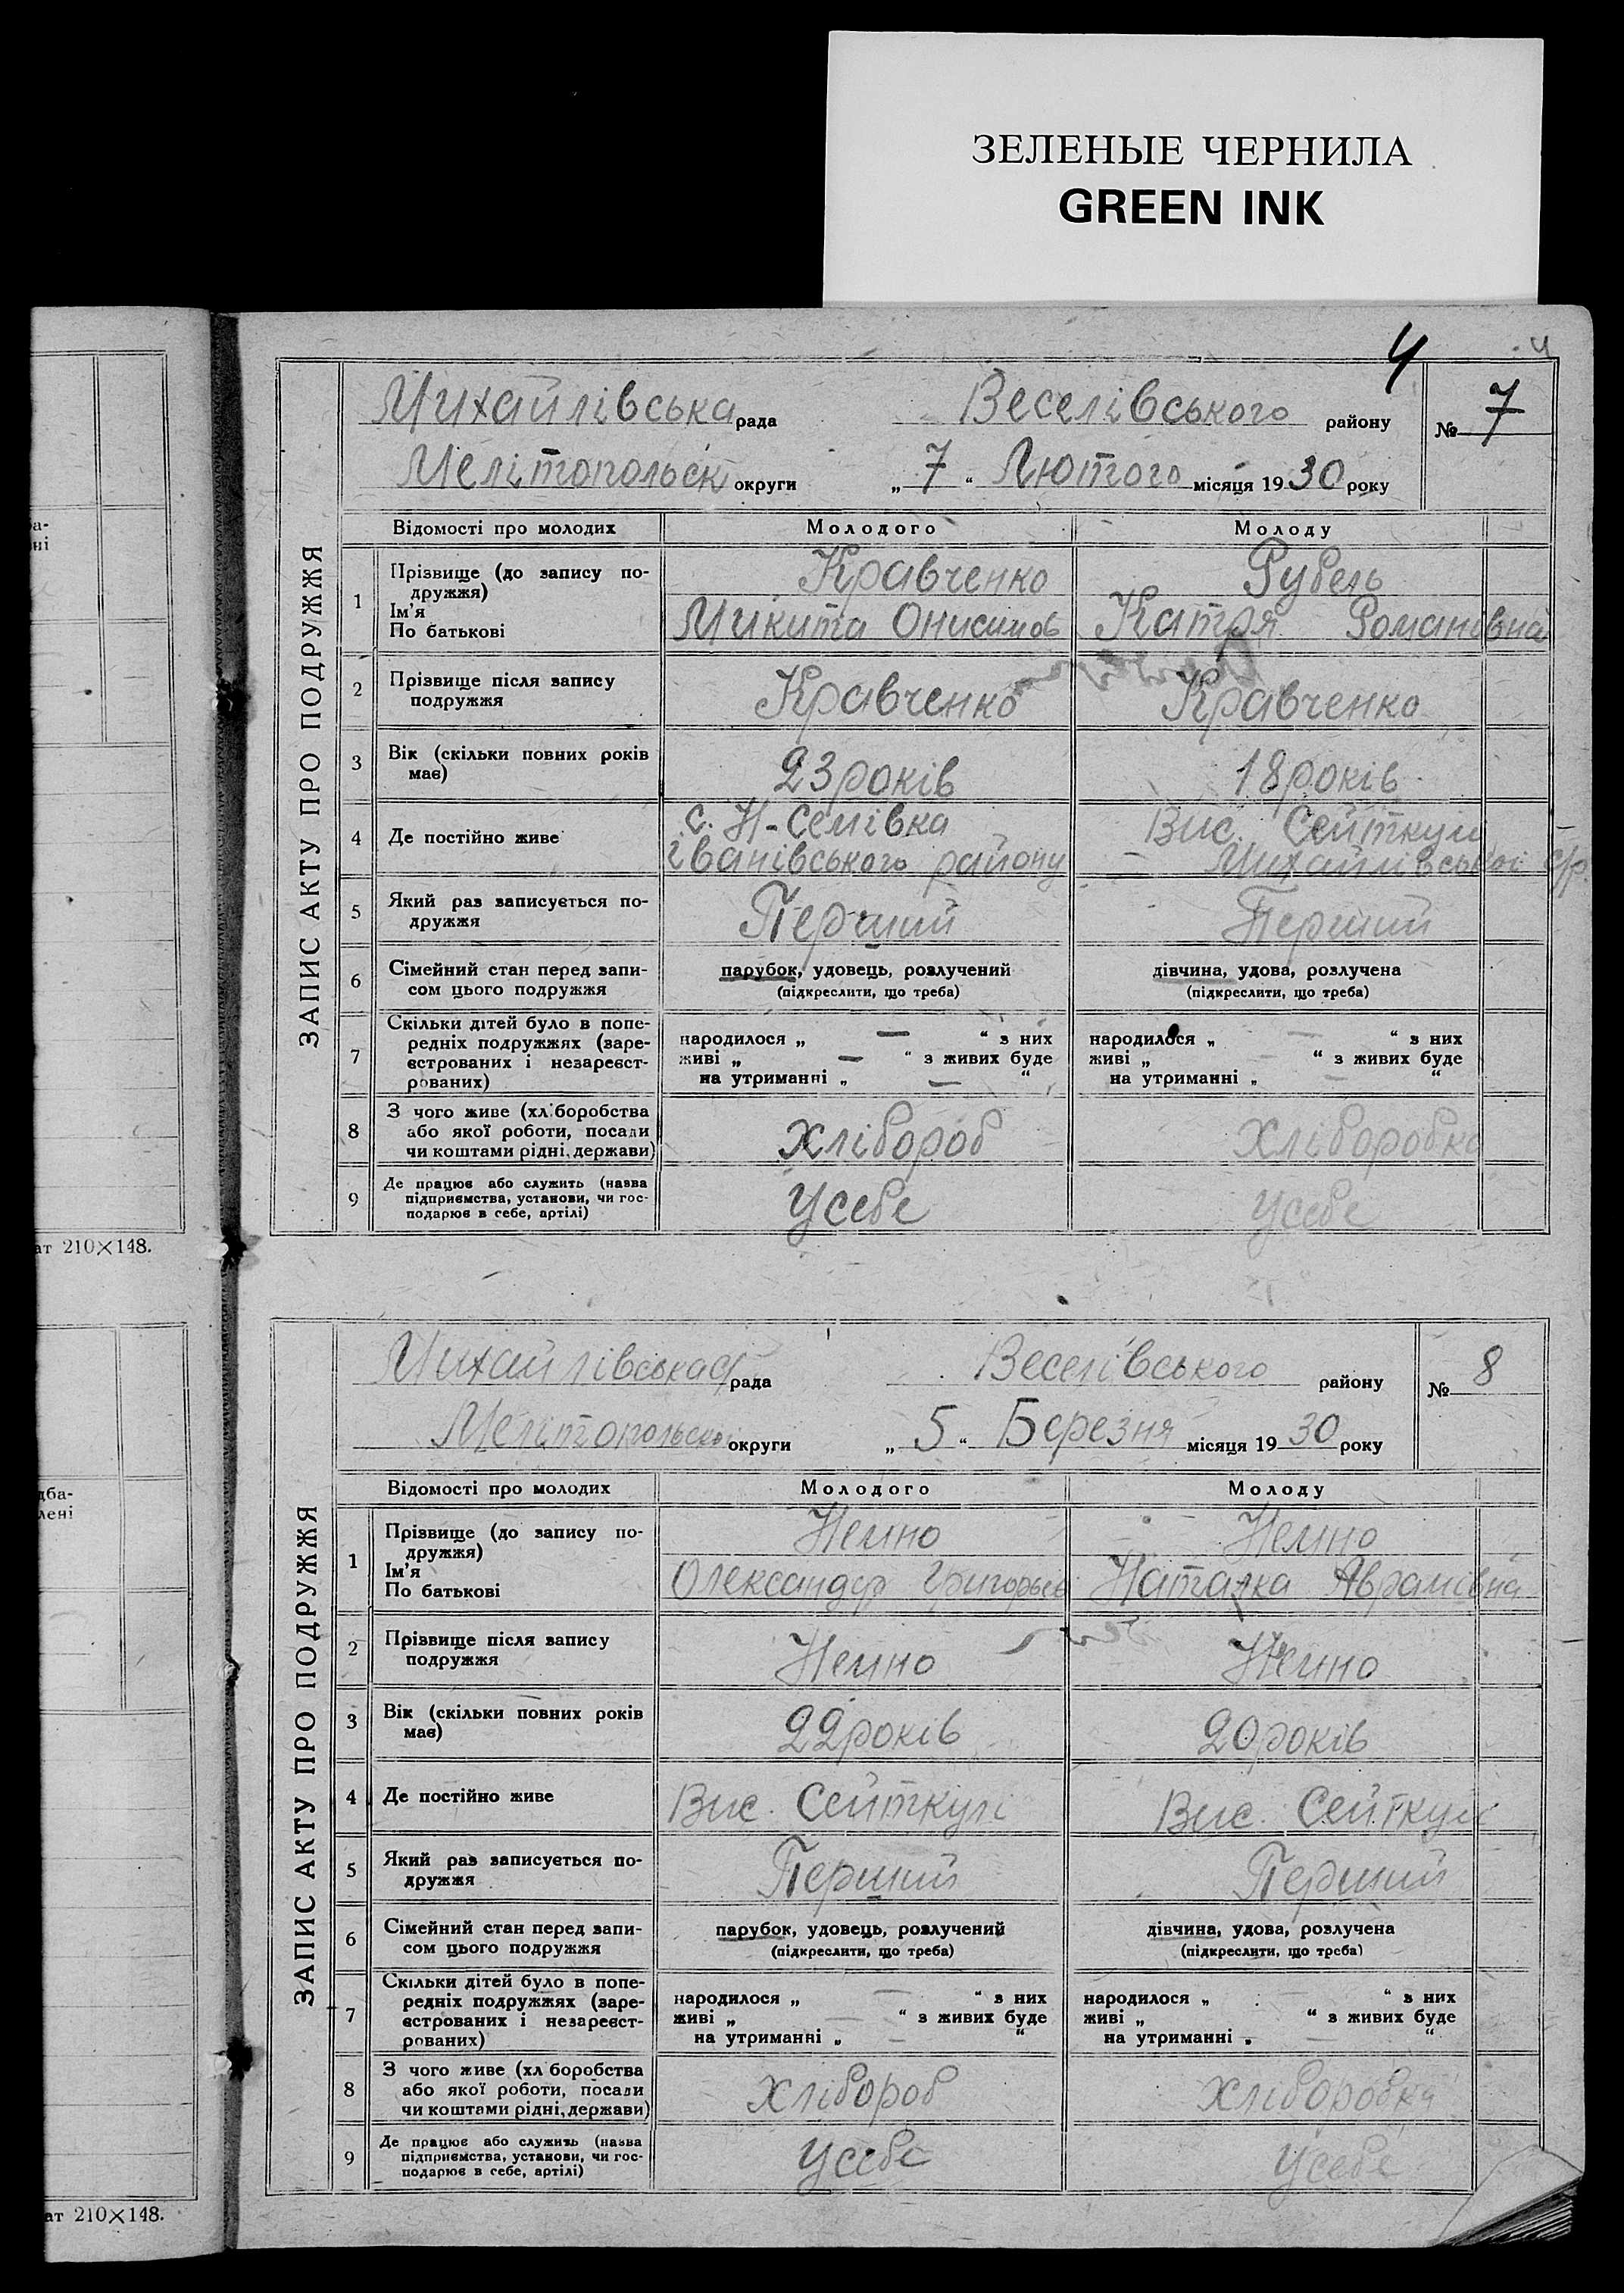 ЗЕЛЕНЫЕ ЧЕРНИЛА
GREEN INK
4
4
ЗАПИС АКТУ ПРО ПОДРУЖЖЯ
Михайлівська рада Веселівського району № 7
Мелітопольськ округи „ 7 “ Лютого місяця 1930 року
Відомості про молодих Молодого Молоду
1 Прізвище (до запису по-
дружжя)
Ім'я
По батькові
Кравченко Рубель
Микита Онисимов Катря Романівна
2 Прізвище після запису
подружжя
Кравченко Кравченко
3 Вік (скільки повних років
має)
23 років 18 років
4 Де постійно живе
с. Н-Семівка Вис. Сейткули
Іванівського району Михайлівської с/р.
5 Який раз записується по-
дружжя
Перший Перший
6 Сімейний стан перед запи-
сом цього подружжя
парубок, удовець, розлучений дівчина, удова, розлучена
(підкреслити, що треба) (підкреслити, що треба)
7 Скільки дітей було в попе-
редніх подружжях (заре-
єстрованих і незареєст-
рованих)
народилося „ — “ з них народилося „ — “ з них
живі „ — “ з живих буде живі „ “ з живих буде
на утриманні „ — “ на утриманні „ — “
8 З чого живе (хліборобства
або якої роботи, посади
чи коштами рідні, держави)
Хлібороб Хліборобка
9 Де працює або служить (назва
підприємства, установи, чи гос-
подарює в себе, артілі)
У себе У себе
ат 210×148.
ЗАПИС АКТУ ПРО ПОДРУЖЖЯ
Михайлівська с/рада Веселівського району № 8
Мелітопольської округи „ 5 “ Березня місяця 1930 року
Відомості про молодих Молодого Молоду
1 Прізвище (до запису по-
дружжя)
Ім'я
По батькові
Немно Немно
Олександр Григорьев Наталка Аврамівна
2 Прізвище після запису
подружжя
Немно Немно
3 Вік (скільки повних років
має)
22 років 20 років
4 Де постійно живе
Вис. Сейткули Вис. Сейткули
5 Який раз записується по-
дружжя
Перший Перший
6 Сімейний стан перед запи-
сом цього подружжя
парубок, удовець, розлучений дівчина, удова, розлучена
(підкреслити, що треба) (підкреслити, що треба)
7 Скільки дітей було в попе-
редніх подружжях (заре-
єстрованих і незареєст-
рованих)
народилося „ — “ з них народилося „ — “ з них
живі „ — “ з живих буде живі „ “ з живих буде
на утриманні „ — “ на утриманні „ — “
8 З чого живе (хліборобства
або якої роботи, посади
чи коштами рідні, держави)
Хлібороб Хліборобка
9 Де працює або служить (назва
підприємства, установи, чи гос-
подарює в себе, артілі)
У себе У себе
ат 210×148.